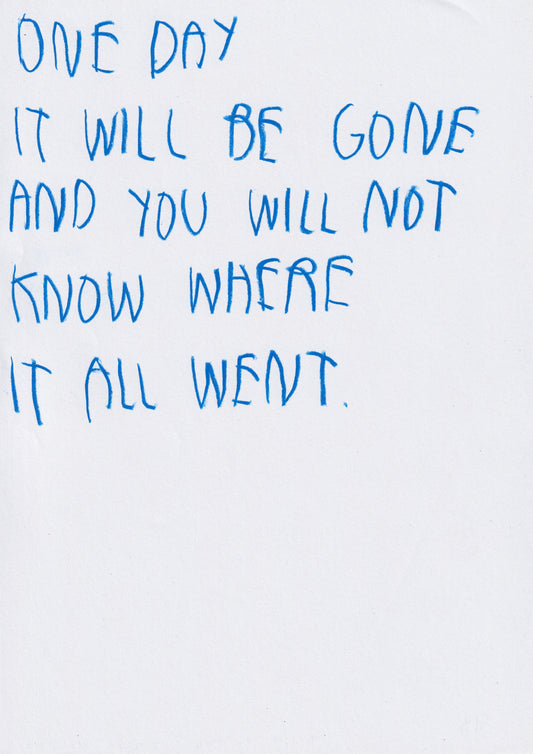 ONE DAY
IT WILL BE GONE
AND YOU WILL NOT
KNOW WHERE
IT ALL WENT.